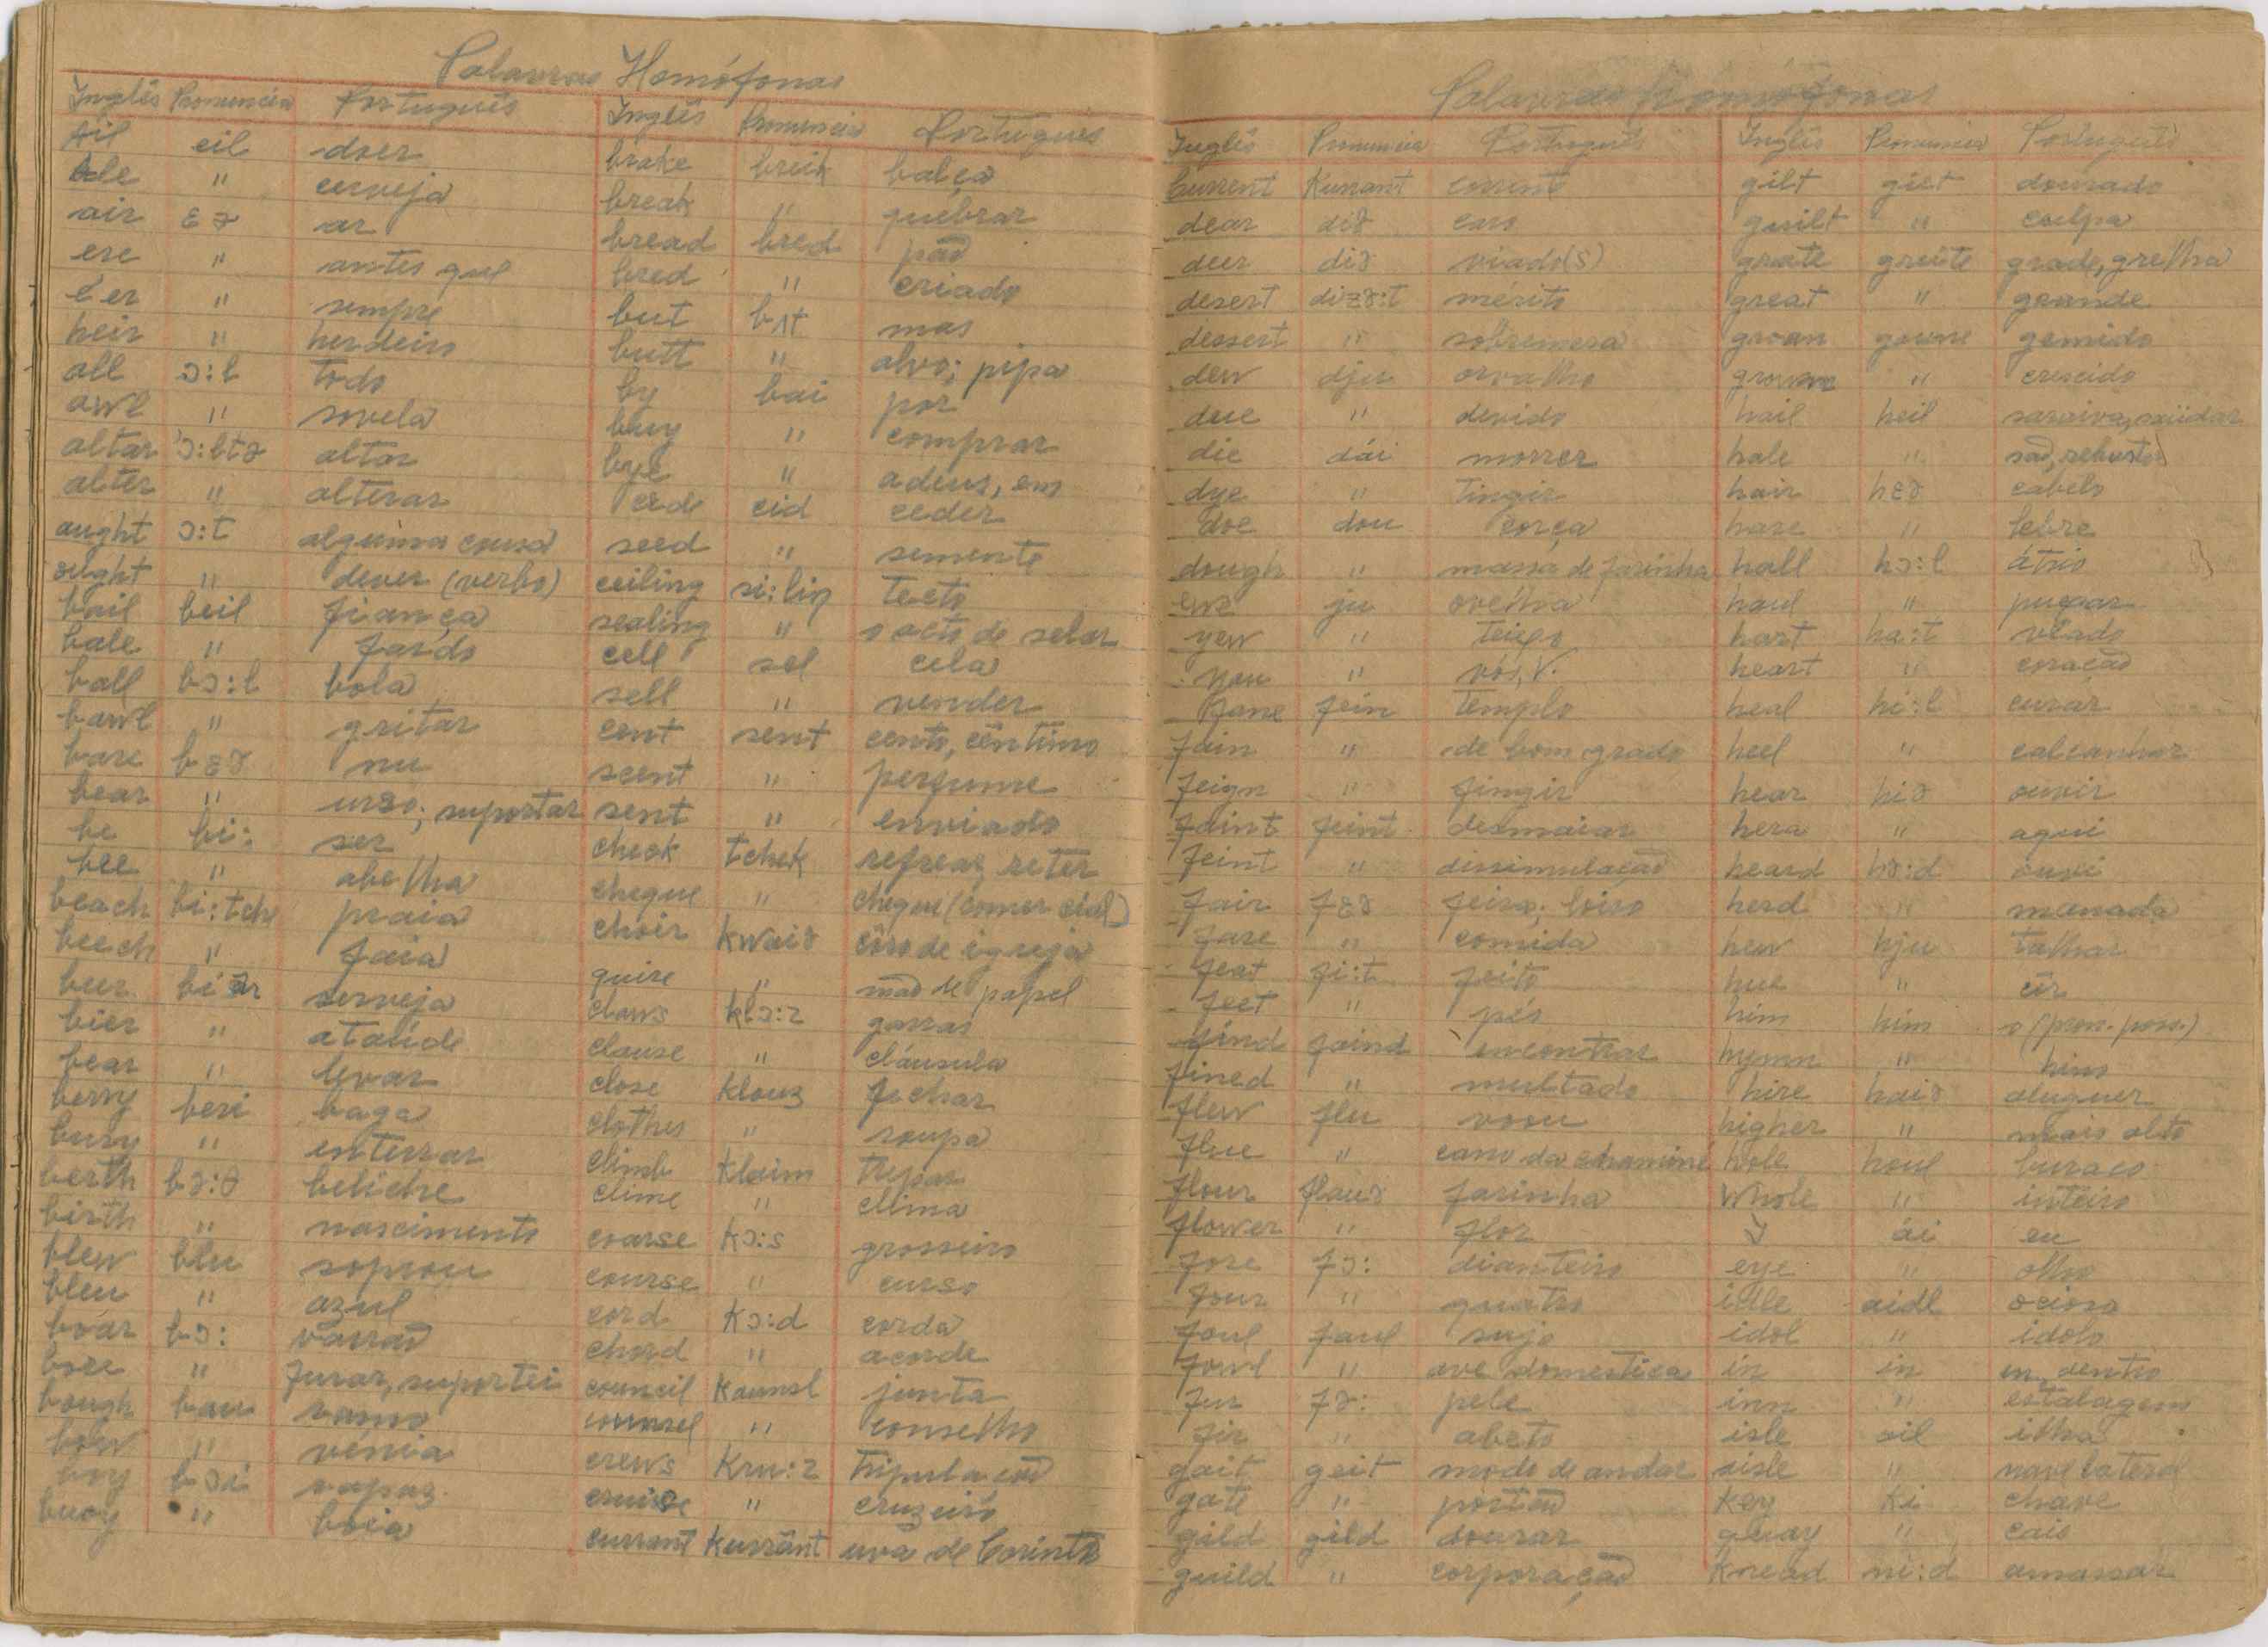 Palavras Homófonas
Inglês Pronuncia Português Inglês Pronuncia Português
Ail eil doer brake breik balça
Ale " cerveja break " quebrar
air ɛə ar bread bred pão
ere " antes que bred " criado
e'er " sempre but bʌt mas
heir " herdeiro butt " alvo; pipa
all ɔ:l todo by bai por
awl " sovela buy " comprar
altar ɔ:ltə altar bye " adeus, em
alter " alterar cede cid ceder
aught ɔ:t alguma cousa seed " semente
ought " dever (verbo) ceiling si:liŋ tecto
bail beil fiança sealing " o acto de selar
bale " fardo cell sel cela
ball bɔ:l bola sell " vender
bawl " gritar cent sent cento, cêntimo
bare bɛə nu scent " perfume
bear " urso; suportar sent " enviado
be bi: ser check tchek refrear, reter
bee " abelha cheque " cheque (comercial)
beach bi:tche praia choir kwaiə côro de igreja
beech " faia quire " mão de papel
beer biər serveja claws klɔ:z garras
bier " ataúde clause " cláusula
bear " levar close klouz fechar
berry beri baga clothes " roupa
bury " enterrar climb klaim trepar
berth bə:θ beliche clime " clima
birth " nascimento coarse kɔ:s grosseiro
blew blu soprou course " curso
bleu " azul cord kɔ:d corda
boar bɔ: varrão chord " acorde
bore " furar, suportei council kaunsl junta
bough bau ramo counsel " conselho
bow " vénia crews kru:z tripulação
boy bɔi rapaz cruise " cruzeiro
buoy " boia currant kurrant uva de Corinto
Palavras Homófonas
Inglês Pronuncia Português Inglês Pronuncia Português
Current Kurrant corrente gilt gilt dourado
dear diə caro guilt " culpa
deer diə viado(s) grate greite grade, grelha
desert dizə:t mérito great " grande
dessert " sobremesa groan groune gemido
dew dju orvalho grown " crescido
due " devido hail heil saraiva, saüdar
die dái morrer hale " são, robusto
dye " tingir hair hɛə cabelo
doe dou corça hare " lebre
dough " massa de farinha hall hɔ:l átrio
ewe ju ovelha haul " puxar
yew " teixo hart ha:t viado
you " vós, V. heart " coração
fane fein templo heal hi:l curar
fain " de bom grado heel " calcanhar
feign " fingir hear hiə ouvir
faint feint desmaiar here " aqui
feint " dissimulação heard hə:d ouvi
fair fɛə feira; loiro herd " manada
fare " comida hew hju talhar
feat fi:t feito hue " côr
feet " pés him him o (pron. poss.)
find faind encontrar hymn " hino
fined " multado hire haiə aluguer
flew flu voou higher " mais alto
flue " cano da chaminé hole houl buraco
flour flauə farinha whole " inteiro
flower " flor I ái eu
fore fɔ: dianteiro eye " olho
four " quatro idle aidl ocioso
foul faul sujo idol " idolo
fowl " ave domestica in in em, dentro
fur fə: pele inn " estalagem
fir " abeto isle ail ilha
gait geit modo de andar aisle " nave lateral
gate " portão key ki chave
gild gild dourar quay " cais
guild " corporação Knead ni:d amassar